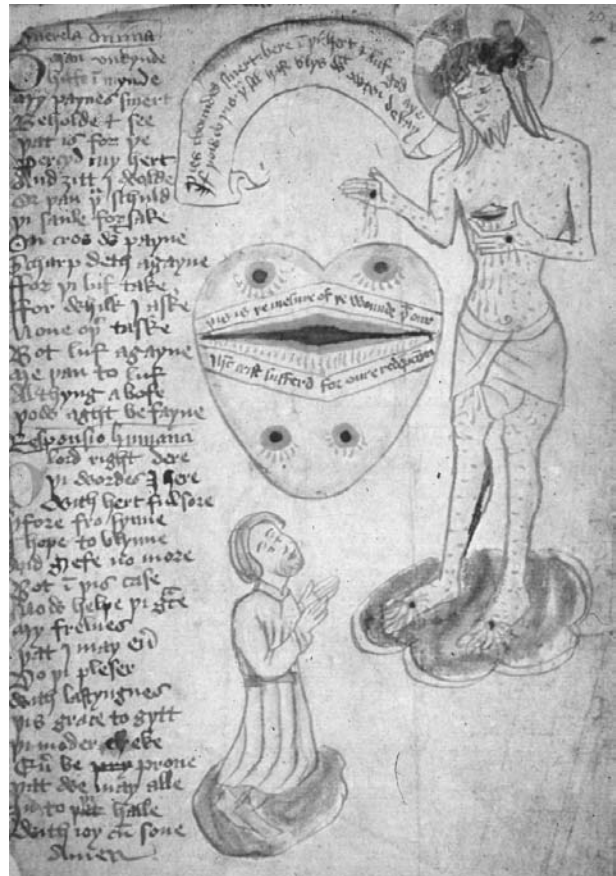 Querela diuina
O man vnkynde
hafe ī mynde
my paynes smert
Beholde & see
þat is for þe
percyd my hert
And ȝitt I wolde
Or þan þu schuld
þi saule forsake
On cros wt payne
Scharp deth agayne
ffor þi luf take
ffor whilk I aske
None oþ taske
Bot luf agayne
Me þan to luf
Al thyng a bofe
þow aght be fayne
Responsio humana
O lord right dere
þi wordes I here
with hert ful sore
þfore fro synne
I hope to blynne
And grefe no more
Bot ī þis case
Now helpe þi gce
My frelnes
þat I may eū
Do þi pleser
with lastyngnes
þis grace to gytt
þi moder eke
Eū be prone
þat we may alle
In to þi halle
with ioy cū sone
Amen
þies woundes smert bere ī þi hert & luf god aye
If þow do þis þu sal haf blys wt owten delay
20
þis is þe mesure of þe wounde þt our
Ihc crist sufferd for oure redempcion